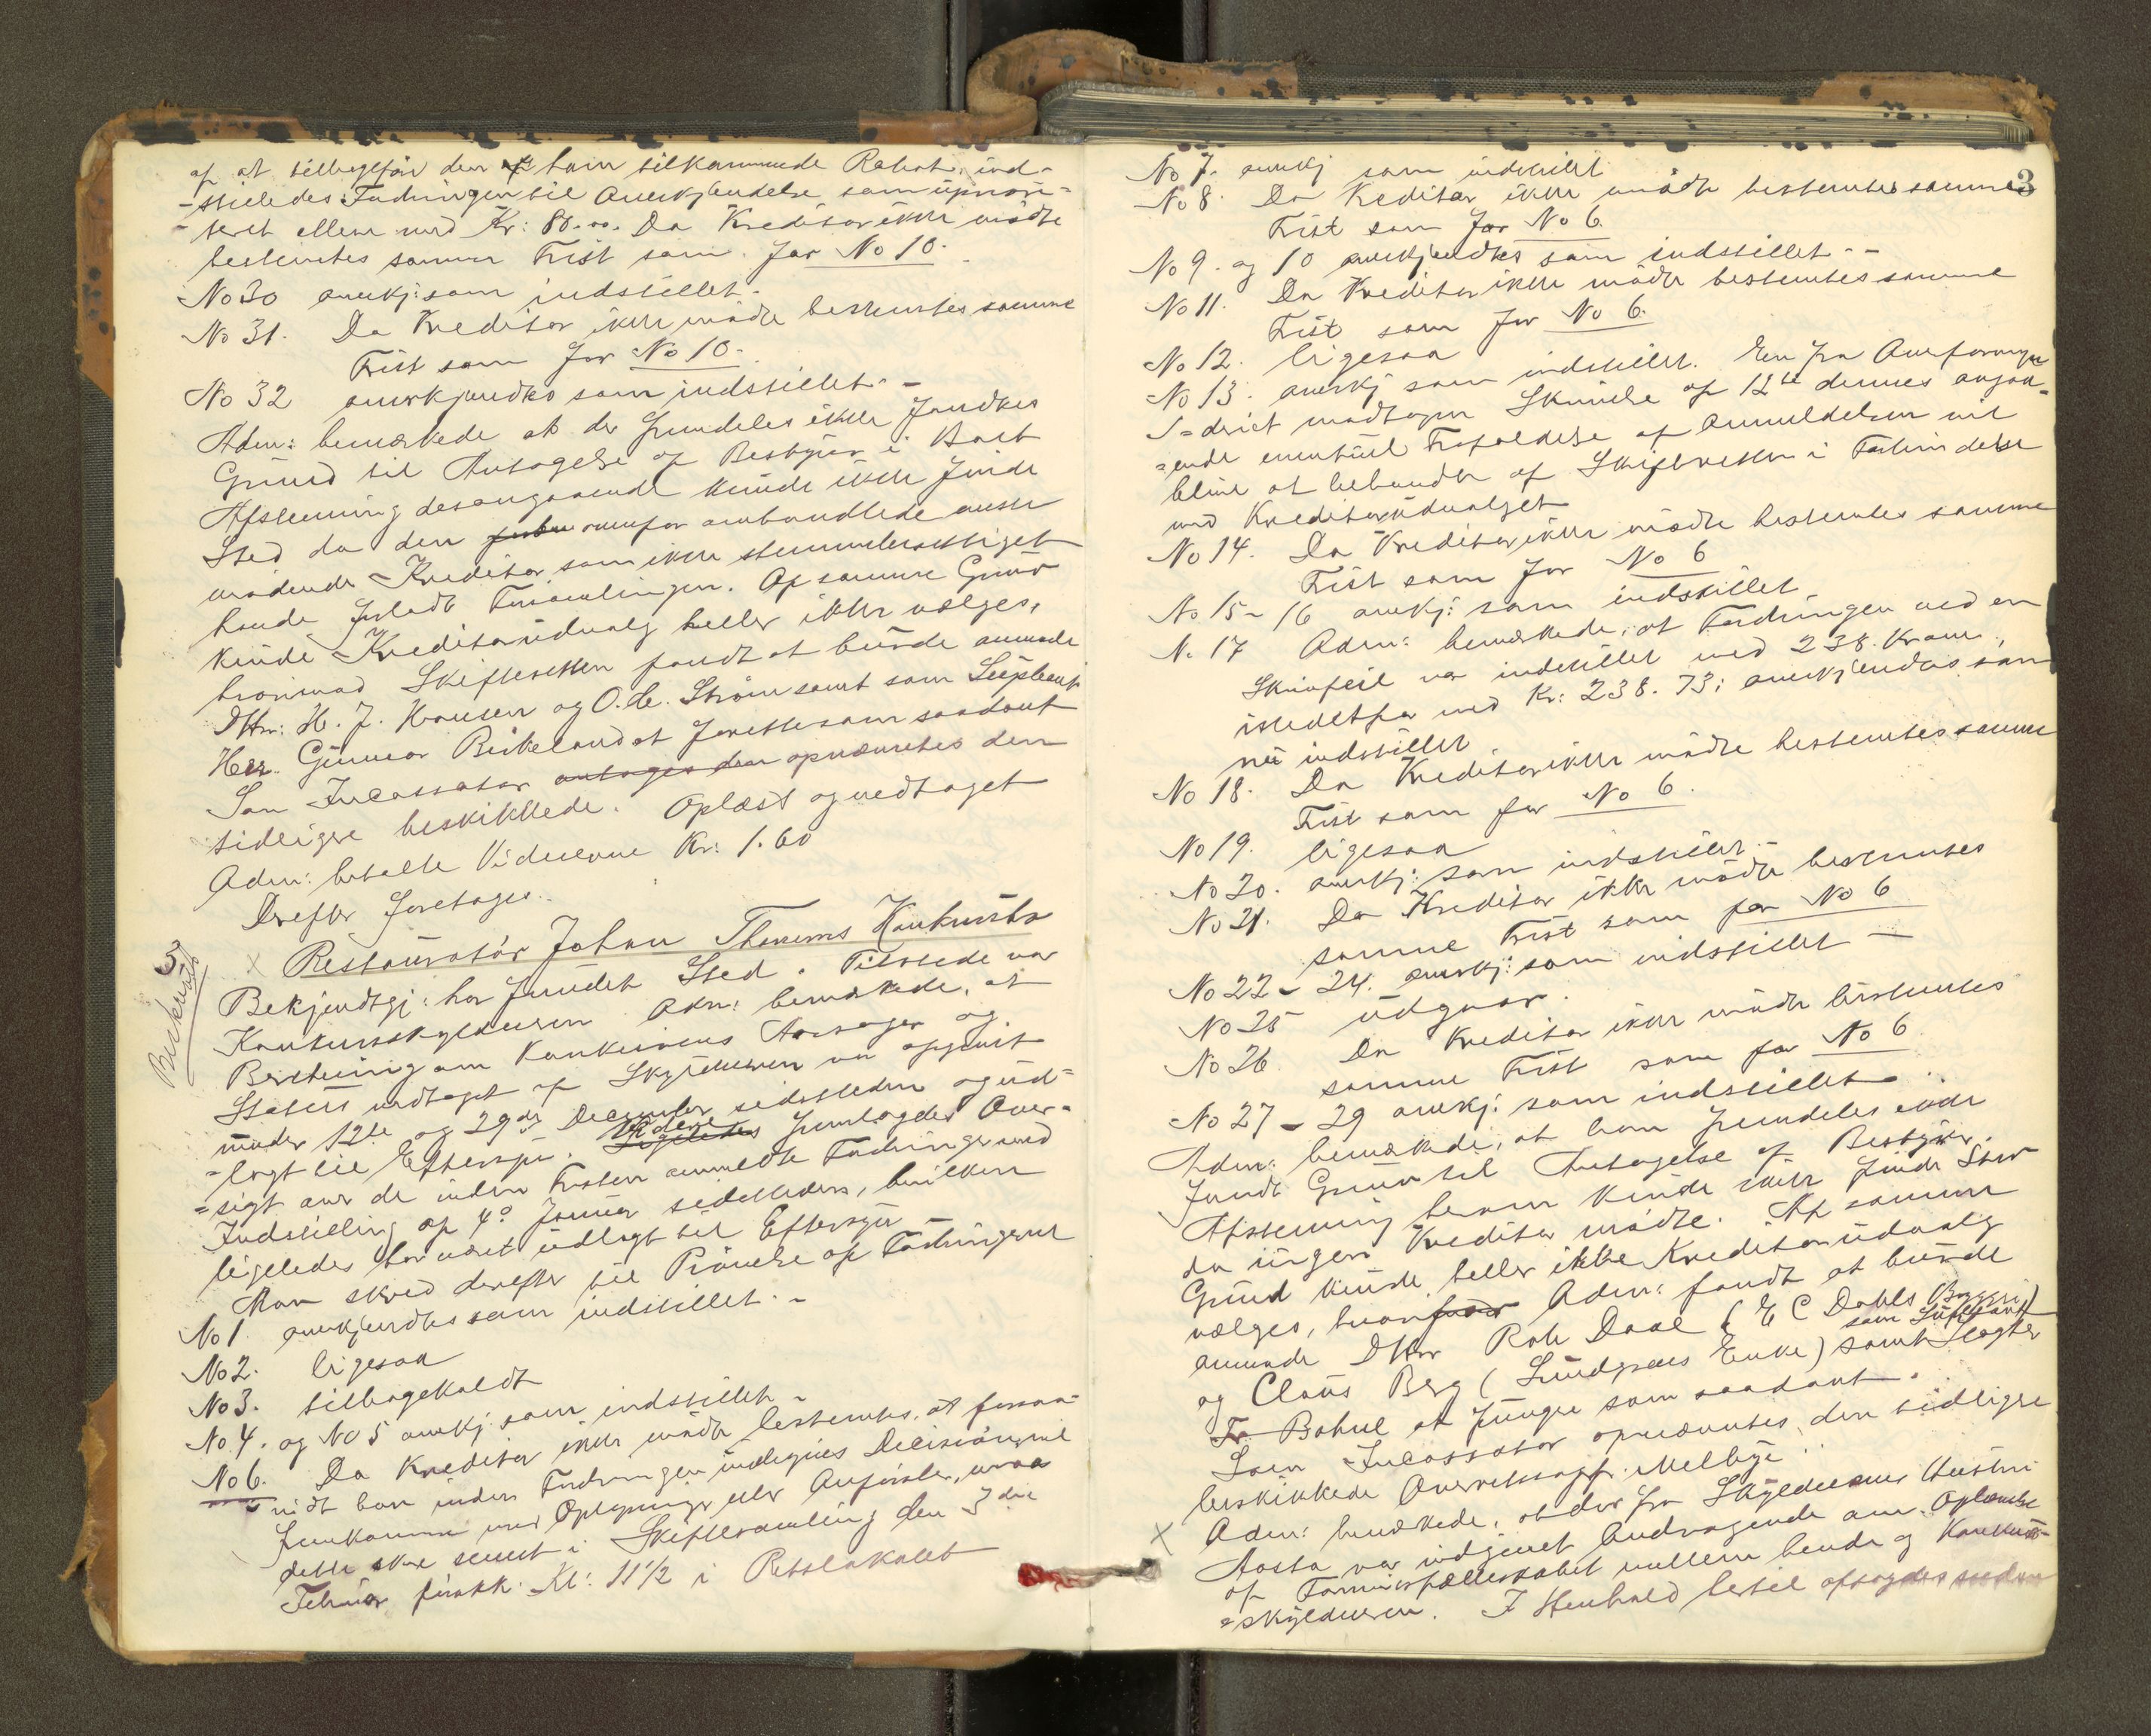 af at tilbageføre den af ham tilkommende Rabat, ind-
-stilledes Fordringen til Anerkjendelse som uprori-
-teret ellers med Kr: 80.00. Da Kreditor ikke mødte
bestemtes samme Frist som for No 10.
No 30 anerkj: som indstillet.-
No 31. Da Kreditor ikke mødte bestemtes samme
Frist som for No 10.
No 32 anerkjendtes som indstillet.-
Adm: bemærkede at der fremdeles ikke fandtes
Grund til Antagelse af Bestyrer i Boet
Afstemning desangaaende kunde ikke finde
Sted da den ovenfor ombandlede eneste
mødende Kreditor som ikke stemmeberettiget
havde forladt Forsamlingen. Af samme Grund
kunde Kreditorudvalg heller ikke vælges,
hvorimod Skifteretten fandt at burde anmode
DHrr: H. J. Hansen og O. H. Strøm samt som Supleant
Herr Gunnar Birkeland at forrette som saadant
Som Incassator antages den opnævntes den
tidligere beskikkede. Oplæst og vedtaget
Adm: betalte Vidnerne Kr: 1.60
Derefter foretoges.
3
Beskikket
x Restauratør Johan Thorems Konkursbo
Bekjendtgj: har fundet Sted. Tilstede var
Konkursskyldneren Adm: bemærkede, at
Beretning om Konkursens Aarsager og
Status vedtaget af Skyldneren var afgivet
under 12te og 29de December sidstleden og ud-
-lagt til Eftersyn. Ligeledes Videre fremlagdes Over-
-sigt over de inden Fristen anmeldte Fordringer med
Indstilling af 4o Januar sidstleden, hvilken
ligeledes har været udlagt til Eftersyn -
Man skred derefter til Prøvelse af Fordringerne
No 1 anerkjendtes som indstillet.-
No 2. ligesaa
No 3. tilbagekaldt
No 4. og No 5 anerkj: som indstillet -
No 6. Da Kreditor ikke mødte bestemtes, at forsaa-
-vidt han inden Fordringen undergives Decision vil
fremkomme med Oplysninger eller Anførsler, maa
dette ske senest i Skiftesamling den 3die
Februar førstk. Kl: 11 1/2 i Retslokalet
3
No 7. anerkj som indstillet
No 8. Da Kreditor ikke mødte bestemtes samme
Frist som for No 6.
No 9. og 10 anerkjendtes som indstillet.-
No 11. Da Kreditor ikke mødte bestemtes samme
Frist som for No 6.
No 12. ligesaa
No 13. anerkj som indstillet. En fra Anmelderen
modtagen Skrivelse af 12te dennes angaa-
-ende eventuel Frafaldelse af Anmeldelsen vil
blive at behandle af Skifteretten i Forbindelse
med Kreditorudvalget
No 14. Da Kreditor ikke mødte bestemtes samme
Frist som for No 6
No 15 - 16 anerkj: som indstillet
No 17 Adm: bemærkede, at Fordringen ved en
Skrivfeil var indstillet med 238 Kroner,
istedetfor med Kr: 238.73; anerkjendtes som
nu indstillet.
No 18. Da Kreditor ikke mødte bestemtes samme
Frist som for No 6.
No 19. ligesaa
No 20. anerkj: som indstillet -
No 21. Da Kreditor ikke mødte bestemtes
samme Frist som for No 6
No 22 - 24. anerkj: som indstillet -
No 25 udgaar.
No 26. Da Kreditor ikke mødte bestemtes
samme Frist som for No 6
No 27 - 29 anerkj: som indstillet.
Adm: bemærkede, at han fremdeles ikke
fandt Grund til Antagelse af Bestyrer.
Afstemning herom kunde ikke finde Sted
da ingen Kreditor mødte. Af samme
Grund kunde heller ikke Kreditorudvalg
vælges, hvorfor Adm: fandt at burde
anmode DHrr Rob Daae (E C Dahls Bryggeri)
og Claus Berg (Lundgreens Enke) samt som Supleant Slagter
Fr Bohne at fungere som saadant.
Som Incassator opnævntes den tidligere
beskikkede Overretssagf. Mellbye
x Adm: bemærkede, at der fra Skyldnerens Hustru
Aasta var indgivet Andragende om Ophævelse
af Formuesfællesskabet mellem hende og Konkurs-
-skyldneren. I Henhold hertil afsagdes